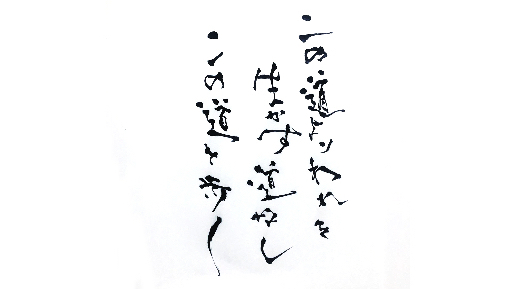 この道よりわれを
生かす道なし
この道を歩く